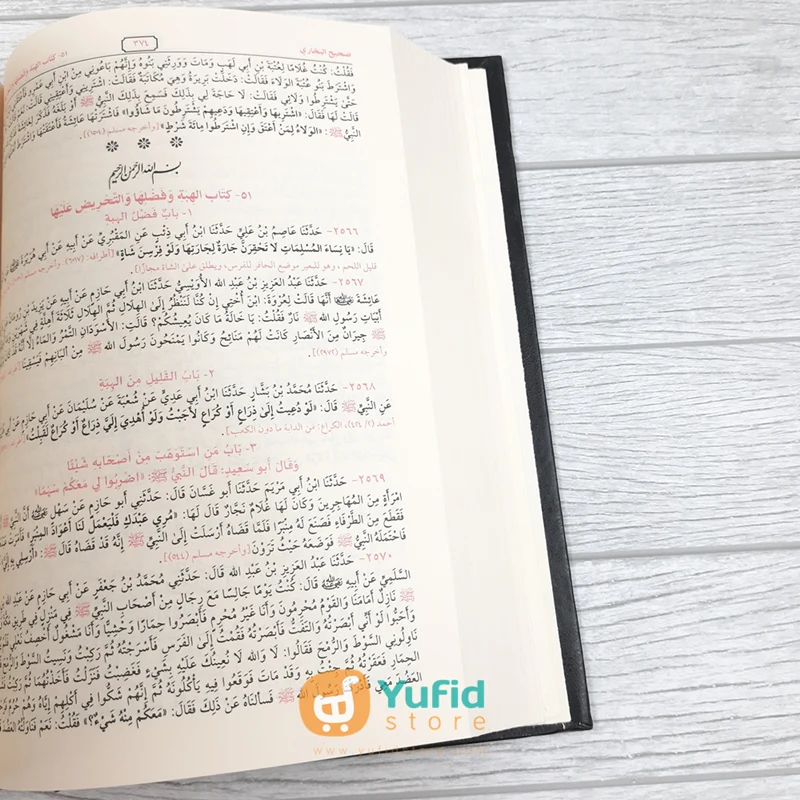 صحيح البخاري
٣٧٤
٥١- كتاب الهبة
فَقُلْتُ: كُنْتُ غُلَامًا لِعُتْبَةَ بْنِ أَبِي لَهَبٍ وَمَاتَ وَوَرِثَنِي بَنُوهُ وَإِنَّهُمْ بَاعُونِي مِنْ ابْنِ أَبِي عَمْرٍو
وَاشْتَرَطَ بَنُو عُتْبَةَ الْوَلَاءَ، فَقَالَتْ: دَخَلَتْ بَرِيرَةُ وَهِيَ مُكَاتَبَةٌ فَقَالَتْ: اشْتَرِينِي وَأَعْتِقِينِي قَالَتْ: نَعَمْ
حَتَّى يَشْتَرِطُوا وَلَائِي فَقَالَتْ: لَا حَاجَةَ لِي بِذَلِكَ فَسَمِعَ بِذَلِكَ النَّبِيُّ ﷺ أَوْ بَلَغَهُ فَذَكَرَ لِعَائِشَةَ
قَالَتْ لَهَا فَقَالَ: «اشْتَرِيهَا وَأَعْتِقِيهَا وَدَعِيهِمْ يَشْتَرِطُونَ مَا شَاؤُوا» فَاشْتَرَتْهَا عَائِشَةُ فَأَعْتَقَتْهَا وَاشْتَرَطَ
النَّبِيُّ ﷺ: «الْوَلَاءُ لِمَنْ أَعْتَقَ وَإِنِ اشْتَرَطُوا مِائَةَ شَرْطٍ» [وأخرجه مسلم (١٥٠٤)].
بسم الله الرحمن الرحيم
٥١- كِتَابُ الهِبَةِ وَفَضْلِهَا وَالتَّحْرِيضِ عَلَيْهَا
١- بَابُ فَضْلِ الهِبَةِ
٢٥٦٦- حَدَّثَنَا عَاصِمُ بْنُ عَلِيٍّ حَدَّثَنَا ابْنُ أَبِي ذِئْبٍ عَنِ الْمَقْبُرِيِّ عَنْ أَبِيهِ عَنْ أَبِي هُرَيْرَةَ
قَالَ: «يَا نِسَاءَ الْمُسْلِمَاتِ لَا تَحْقِرَنَّ جَارَةٌ لِجَارَتِهَا وَلَوْ فِرْسِنَ شَاةٍ» [أطرافه: (٦٠١٧). وأخرجه مسلم
قليل اللحم، وهو للبعير موضع الحافر للفرس، ويطلق على الشاة مجازًا].
٢٥٦٧- حَدَّثَنَا عَبْدُ الْعَزِيزِ بْنُ عَبْدِ اللهِ الْأُوَيْسِيُّ حَدَّثَنَا ابْنُ أَبِي حَازِمٍ عَنْ أَبِيهِ عَنْ يَزِيدَ بْنِ رُومَانَ
عَائِشَةَ أَنَّهَا قَالَتْ لِعُرْوَةَ: ابْنَ أُخْتِي إِنْ كُنَّا لَنَنْظُرُ إِلَى الْهِلَالِ ثُمَّ الْهِلَالِ ثَلَاثَةَ أَهِلَّةٍ فِي شَهْرَيْنِ
أَبْيَاتِ رَسُولِ اللهِ ﷺ نَارٌ فَقُلْتُ: يَا خَالَةُ مَا كَانَ يُعِيشُكُمْ؟ قَالَتْ: الْأَسْوَدَانِ التَّمْرُ وَالْمَاءُ إِلَّا أَنَّهُ
ﷺ جِيرَانٌ مِنَ الْأَنْصَارِ كَانَتْ لَهُمْ مَنَائِحُ وَكَانُوا يَمْنَحُونَ رَسُولَ اللهِ ﷺ مِنْ أَلْبَانِهِمْ فَيَسْقِينَا
وأخرجه مسلم (٢٩٧٢)].
٢- بَابُ القَلِيلِ مِنَ الهِبَةِ
٢٥٦٨- حَدَّثَنَا مُحَمَّدُ بْنُ بَشَّارٍ حَدَّثَنَا ابْنُ أَبِي عَدِيٍّ عَنْ شُعْبَةَ عَنْ سُلَيْمَانَ عَنْ أَبِي حَازِمٍ عَنْ
عَنِ النَّبِيِّ ﷺ قَالَ: «لَوْ دُعِيتُ إِلَى ذِرَاعٍ أَوْ كُرَاعٍ لَأَجَبْتُ وَلَوْ أُهْدِيَ إِلَيَّ ذِرَاعٌ أَوْ كُرَاعٌ لَقَبِلْتُ»
أحمد (٤٢٤/٢)، الكراع: من الدابة ما دون الكعب].
٣- بَابُ مَنِ اسْتَوْهَبَ مِنْ أَصْحَابِهِ شَيْئًا
وَقَالَ أَبُو سَعِيدٍ: قَالَ النَّبِيُّ ﷺ: «اضْرِبُوا لِي مَعَكُمْ سَهْمًا»
٢٥٦٩- حَدَّثَنَا ابْنُ أَبِي مَرْيَمَ حَدَّثَنَا أَبُو غَسَّانَ قَالَ: حَدَّثَنِي أَبُو حَازِمٍ عَنْ سَهْلٍ أَنَّ النَّبِيَّ
امْرَأَةٍ مِنَ الْمُهَاجِرِينَ وَكَانَ لَهَا غُلَامٌ نَجَّارٌ قَالَ لَهَا: «مُرِي عَبْدَكِ فَلْيَعْمَلْ لَنَا أَعْوَادَ الْمِنْبَرِ» فَأَمَرَتْ
فَقَطَعَ مِنَ الطَّرْفَاءِ فَصَنَعَ لَهُ مِنْبَرًا فَلَمَّا قَضَاهُ أَرْسَلَتْ إِلَى النَّبِيِّ ﷺ إِنَّهُ قَدْ قَضَاهُ قَالَ ﷺ: «أَرْسِلِي بِهِ
فَاحْتَمَلَهُ النَّبِيُّ ﷺ فَوَضَعَهُ حَيْثُ تَرَوْنَ [وأخرجه مسلم (٥٤٤)].
٢٥٧٠- حَدَّثَنَا عَبْدُ الْعَزِيزِ بْنُ عَبْدِ اللهِ قَالَ: حَدَّثَنِي مُحَمَّدُ بْنُ جَعْفَرٍ عَنْ أَبِي حَازِمٍ عَنْ عَبْدِ اللهِ
السَّلَمِيِّ عَنْ أَبِيهِ قَالَ: كُنْتُ يَوْمًا جَالِسًا مَعَ رِجَالٍ مِنْ أَصْحَابِ النَّبِيِّ ﷺ فِي مَنْزِلٍ فِي طَرِيقِ
ﷺ نَازِلٌ أَمَامَنَا وَالْقَوْمُ مُحْرِمُونَ وَأَنَا غَيْرُ مُحْرِمٍ فَأَبْصَرُوا حِمَارًا وَحْشِيًّا وَأَنَا مَشْغُولٌ أَخْصِفُ نَعْلِي
وَأَحَبُّوا لَوْ أَنِّي أَبْصَرْتُهُ وَالْتَفَتُّ فَأَبْصَرْتُهُ فَقُمْتُ إِلَى الْفَرَسِ فَأَسْرَجْتُهُ ثُمَّ رَكِبْتُ وَنَسِيتُ السَّوْطَ وَالرُّمْحَ
نَاوِلُونِي السَّوْطَ وَالرُّمْحَ فَقَالُوا: لَا وَاللهِ لَا نُعِينُكَ عَلَيْهِ بِشَيْءٍ فَغَضِبْتُ فَنَزَلْتُ فَأَخَذْتُهُمَا ثُمَّ
الْحِمَارِ فَعَقَرْتُهُ ثُمَّ جِئْتُ بِهِ وَقَدْ مَاتَ فَوَقَعُوا فِيهِ يَأْكُلُونَهُ ثُمَّ إِنَّهُمْ شَكُّوا فِي أَكْلِهِمْ إِيَّاهُ وَهُمْ حُرُمٌ
الْعَضُدَ مَعِي فَأَدْرَكْنَا رَسُولَ اللهِ ﷺ فَسَأَلْنَاهُ عَنْ ذَلِكَ فَقَالَ: «مَعَكُمْ مِنْهُ شَيْءٌ؟» فَقُلْتُ: نَعَمْ فَنَاوَلْتُهُ الْعَضُدَ
Yufid
store